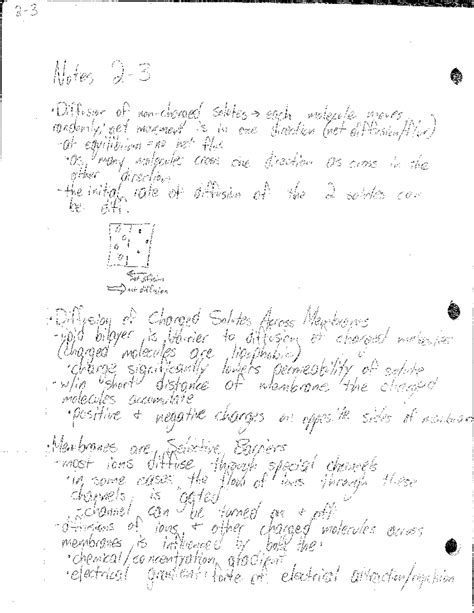 2-3
Notes 2-3
•Diffusion of non-charged solutes → each molecule moves
randomly, net movement is in one direction (net diffusion/flux)
-at equilibrium = no net flux
•as many molecules cross one direction as cross in the
other direction
-the initial rate of diffusion of the 2 solutes can
be diff.
net diffusion
net diffusion
•Diffusion of Charged Solutes Across Membranes
-lipid bilayer is barrier to diffusion of charged molecules
(charged molecules are lipophobic)
•charge significantly lowers permeability of solute
-w/in short distance of membrane the charged
molecules accumulate
•positive & negative charges on opposite sides of membrane
•Membranes are Selective Barriers
-most ions diffuse through special channels
•in some cases, the flow of ions through these
channels is gated
-channel can be turned on & off
-diffusions of ions & other charged molecules across
membranes is influenced by both the:
•chemical/concentration gradient
•electrical gradient: force of electrical attraction/repulsion